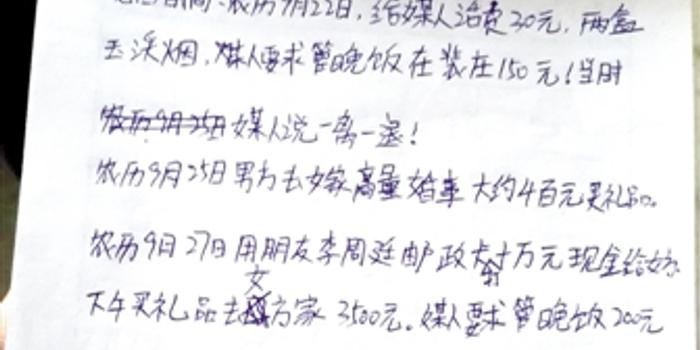 农历9月22日,给媒人路费30元,两盒
玉溪烟,媒人要求管晚饭在装在150元!当时
农历9月25日媒人说一离一退!
农历9月25日男方去女家商量婚事大约4百元买礼品。
农历9日27日用朋友李周廷邮政卡十万元现金给女方
下午买礼品去女方家3500元。媒人要求管晚饭200元